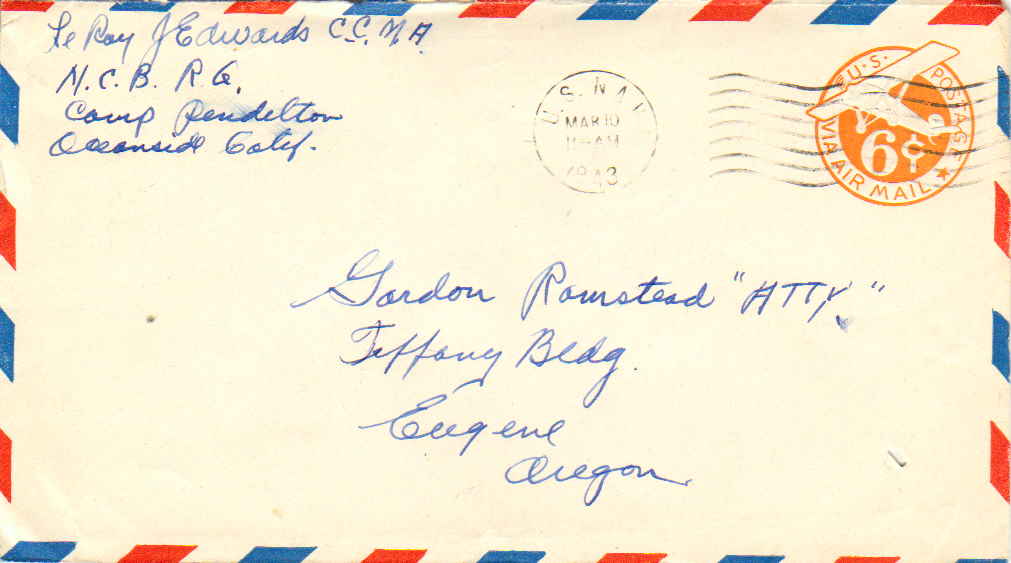 Le Roy J Edwards C.C.M.A.
N.C.B. R.G.
Camp Pendelton
Oceanside Calif.
U.S. NAVY
MAR 10
11-AM
1943
U.S. POSTAGE
6¢
VIA AIR MAIL
Gordon Ramstead "ATTY."
Tiffany Bldg.
Eugene
Oregon